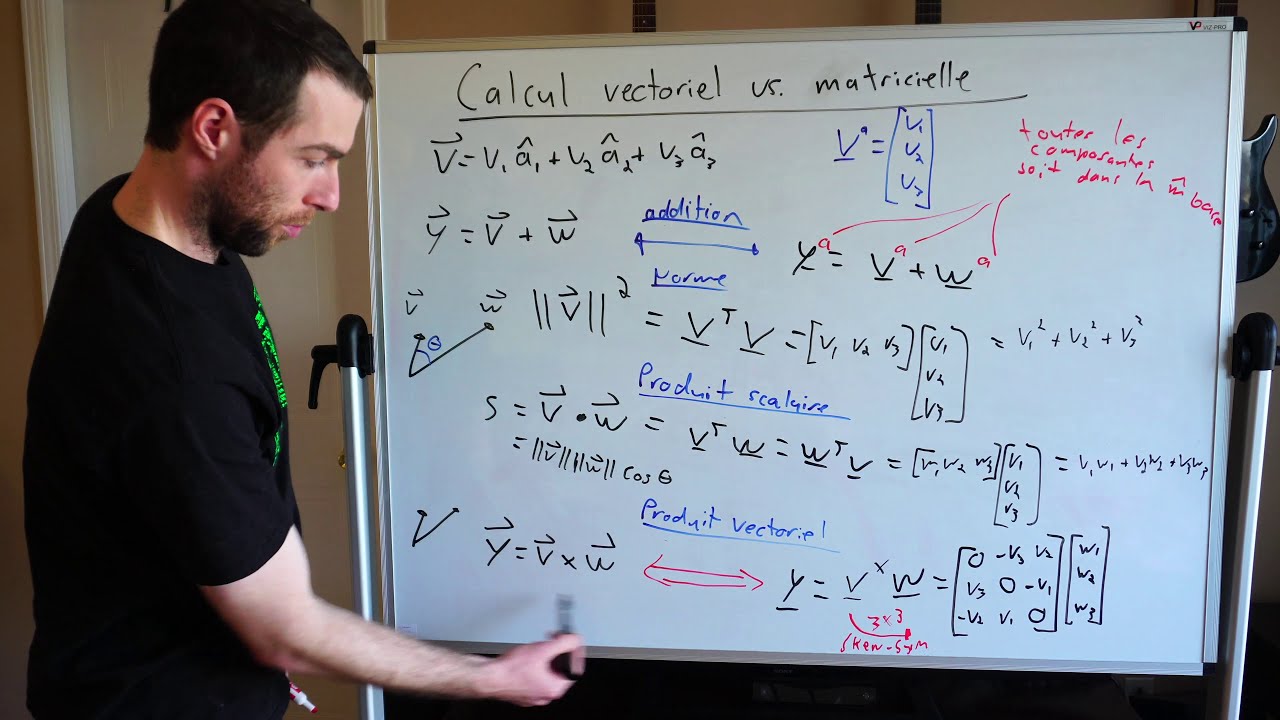 VIZ-PRO
Calcul vectoriel vs. matricielle
V⃗ = V₁ â₁ + V₂ â₂ + V₃ â₃
V̲ᵃ = [V₁ V₂ V₃]
toutes les
composantes
soit dans la m̄
base
y⃗ = v⃗ + w⃗
addition
y̲ᵃ = v̲ᵃ + w̲ᵃ
Norme
v⃗ w⃗ θ
||v⃗||² = v̲ᵀ v̲ = [v₁ v₂ v₃][v₁ v₂ v₃] = v₁² + v₂² + v₃²
Produit scalaire
s = v⃗ • w⃗ = v̲ᵀ w̲ = w̲ᵀ v̲ = [w₁ w₂ w₃][v₁ v₂ v₃]
= ||v⃗|| ||w⃗|| cos θ
Produit vectoriel
y⃗ = v⃗ × w⃗
y̲ = v̲ˣ w̲ = [0 -v₃ v₂; v₃ 0 -v₁; -v₂ v₁ 0][w₁ w₂ w₃]
3×3
sken-sym